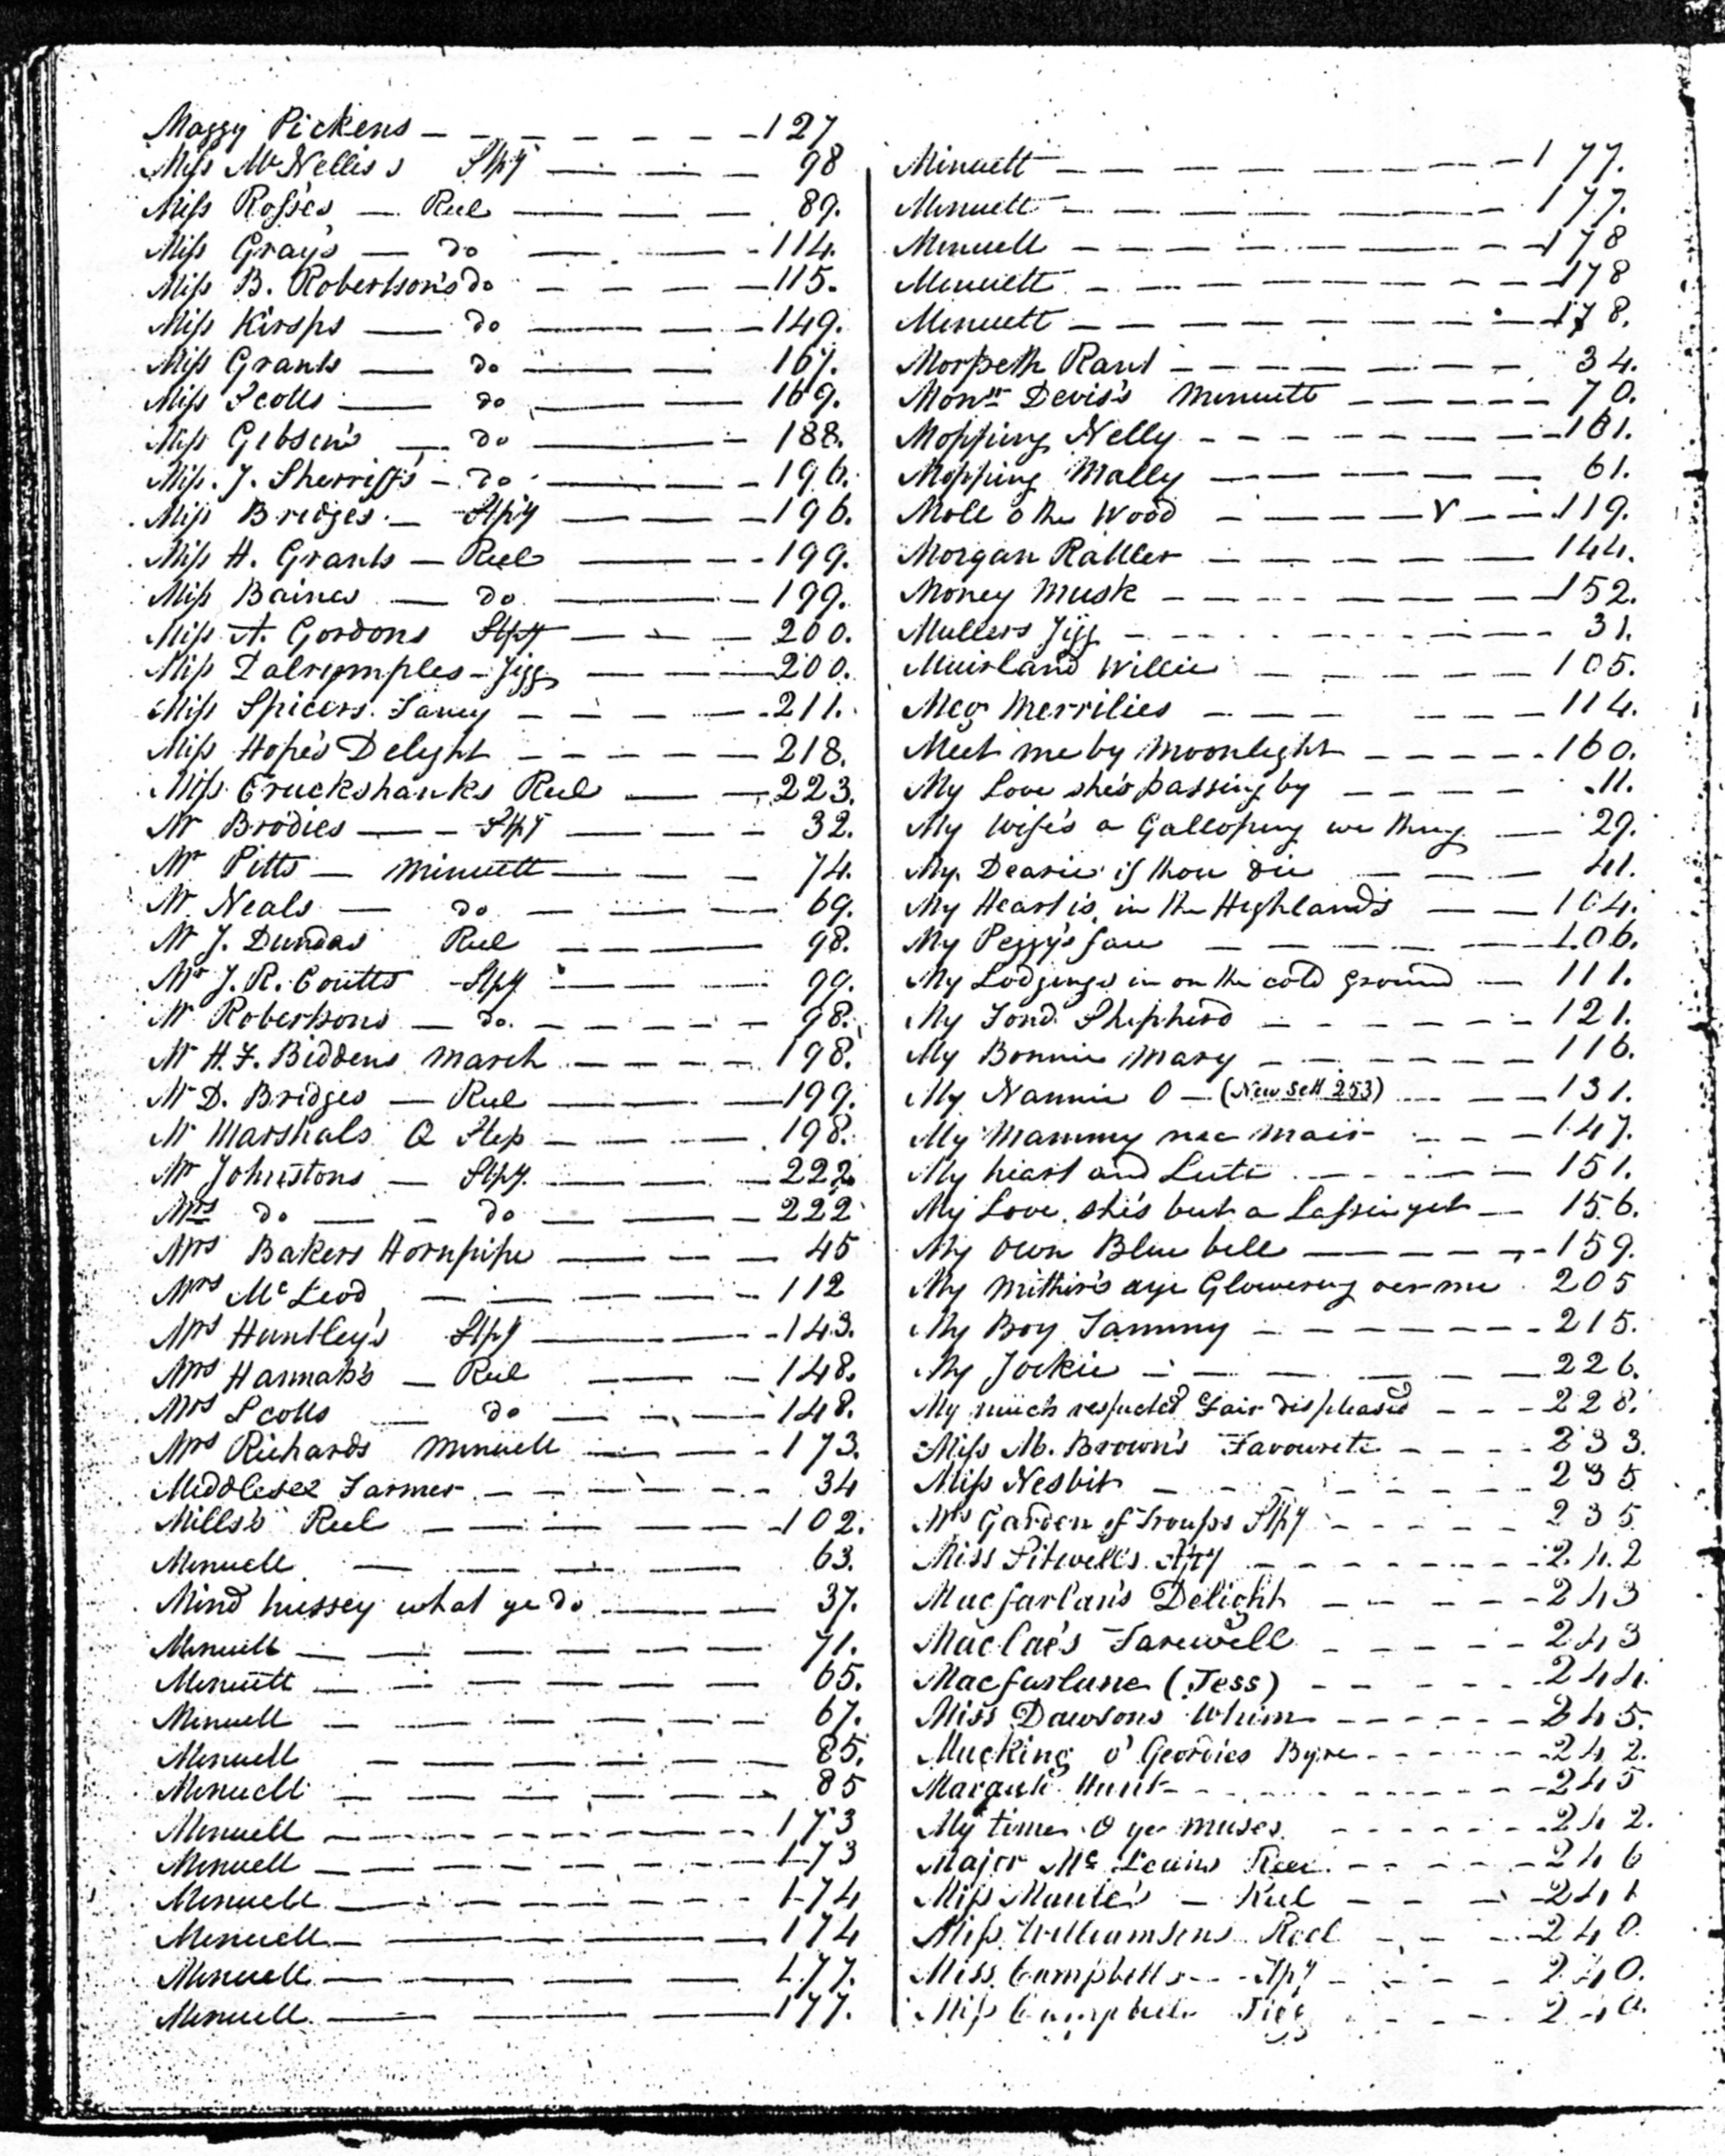 Maggy Pickens — 127
Miss McNellis's Stpy — 98
Miss Rosse's — Reel — 89.
Miss Gray's — do — 114.
Miss B. Robertson's do — 115.
Miss Kirsps — do — 149.
Miss Grants — do — 167.
Miss Scotts — do — 169.
Miss Gibson's — do — 188.
Miss J. Sherriffs — do — 196.
Miss Bridges — Stpy — 196.
Miss H. Grants — Reel — 199.
Miss Baines — do — 199.
Miss A. Gordons Stpy — 200.
Miss Dalrymples — Jigg — 200.
Miss Spicers Fancy — 211.
Miss Hope's Delight — 218.
Miss Cruckshanks Reel — 223.
Mr Brodies — Stpy — 32.
Mr Pitts — Minuett — 74.
Mr Neals — do — 69.
Mr J. Dundas Reel — 98.
Mr J. R. Coutts Stpy — 99.
Mr Robertsons — do. — 98.
Mr H. F. Biddens March — 198.
Mr D. Bridges — Reel — 199.
Mr Marshals Q Step — 198.
Mr Johnstons — Stpy. — 222
Mrs do — do — 222
Mrs Bakers Hornpipe — 45
Mrs McLeod — 112
Mrs Huntley's Stpy — 143.
Mrs Hannah's — Reel — 148.
Mrs Scotts — do — 148.
Mrs Richards Minuett — 173.
Middlesex Farmer — 34
Mills's Reel — 102.
Minuett — 63.
Mind hussey what ye do — 37.
Minuett — 71.
Minuett — 65.
Minuett — 67.
Minuett — 85.
Minuett — 85
Minuett — 173
Minuett — 173
Minuett — 174
Minuett — 174
Minuett — 177.
Minuett — 177.
Minuett — 177.
Minuett — 177.
Minuett — 178
Minuett — 178
Minuett — 178.
Morpeth Rant — 34.
Monsr Devis's Minuett — 70.
Mopping Nelly — 161.
Mopping Mally — 61.
Moll o the Wood — V — 119.
Morgan Rattler — 144.
Money Musk — 152.
Mullers Jigg — 31.
Muirland Willie — 105.
Meg Merrilies — 114.
Meet me by Moonlight — 160.
My Love she's passing by — 11.
My Wife's a Galloping wee thing — 29.
My Dearie if thou die — 41.
My Heart is in the Highlands — 104.
My Peggy's face — 106.
My Lodgings in on the cold ground — 111.
My Fond Shepherd — 121.
My Bonnie Mary — 116.
My Nannie O — (New Sett 253) — 131.
My Mammy nae mair — 147.
My heart and Lute — 151.
My Love she's but a Lassie yet — 156.
My Own Blue bell — 159.
My Mither's aye Glowering oer me 205
My Boy Tammy — 215.
My Jockie — 226.
My much respected Fair displeased — 228.
Miss M. Brown's Favourite — 233.
Miss Nesbit — 235
Mrs Garden of Troups Stpy — 235
Miss Sitwell's Stpy — 242
Macfarlan's Delight — 243
MacCae's Farewell — 243
Macfarlane (Jess) — 244.
Miss Dawsons Whim — 245.
Mucking o' Geordies Byre — 242.
Hunt — 245
My time O ye muses — 242.
Major McLeans Reel — 246
Miss Maule's — Reel — 241
Miss Williamsons Reel — 240
Miss Campbells — Stpy — 240.
Miss Campbells Jigg — 240.